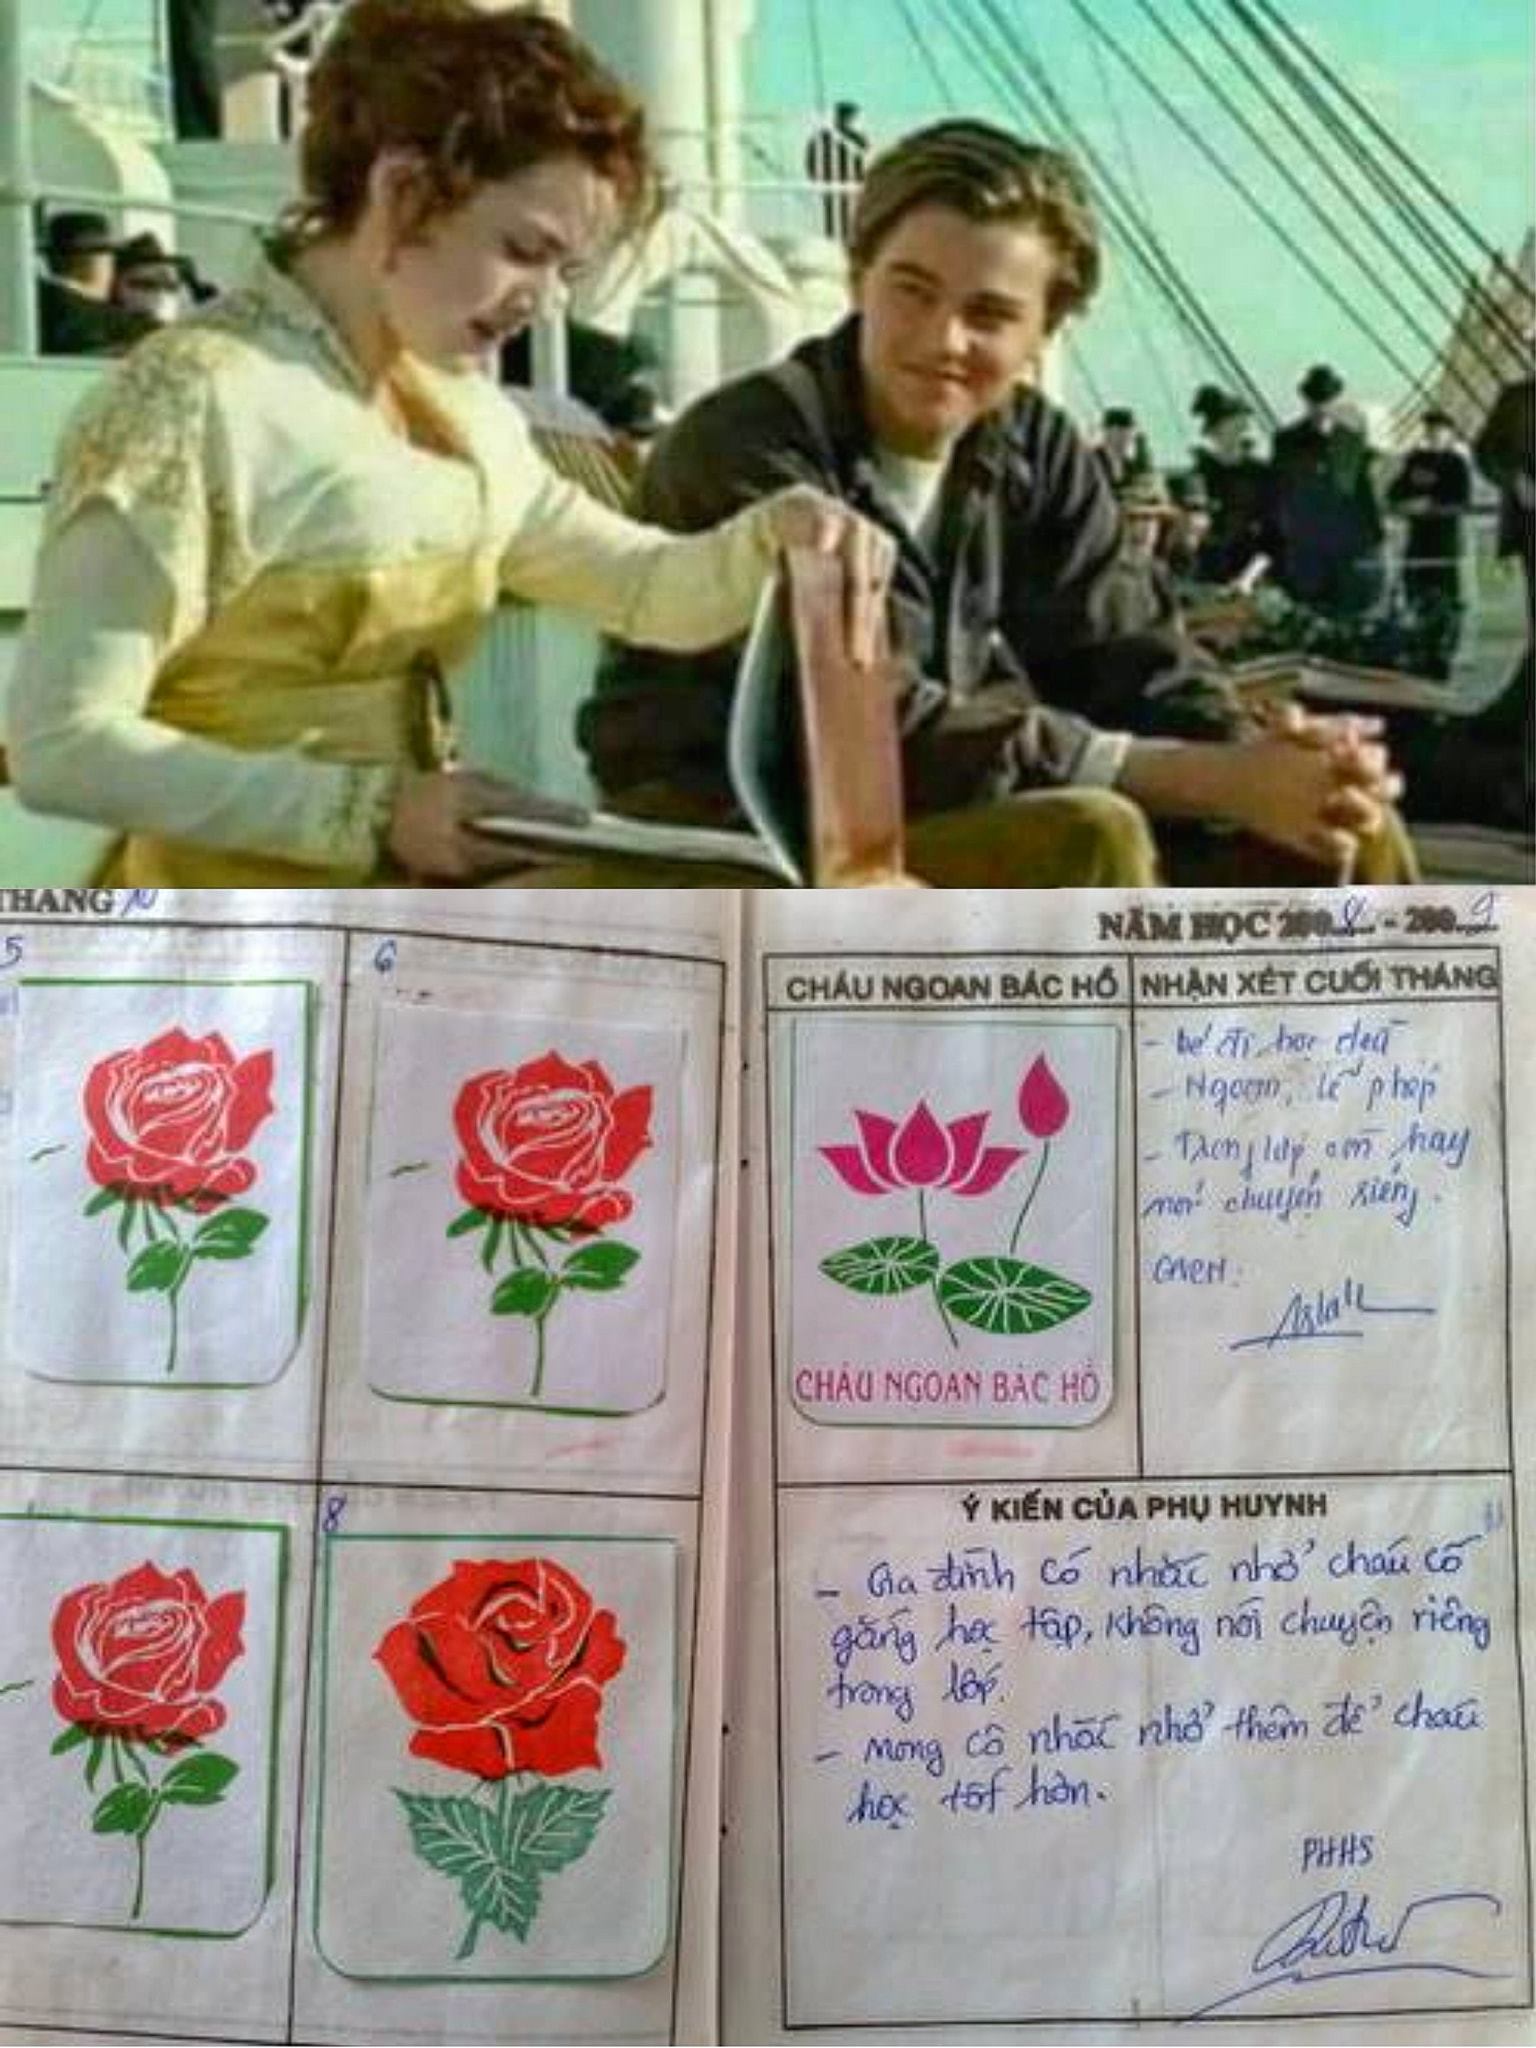 THÁNG 10
NĂM HỌC 2008 - 2009
5
6
8
CHÁU NGOAN BÁC HỒ
NHẬN XÉT CUỐI THÁNG
- bé đi học đều
- Ngoan, lễ phép
- Trong lớp còn hay
nói chuyện riêng.
GVCN:
CHÁU NGOAN BÁC HỒ
Ý KIẾN CỦA PHỤ HUYNH
- Gia đình có nhắc nhở cháu cố
gắng học tập, không nói chuyện riêng
trong lớp.
- Mong cô nhắc nhở thêm để cháu
học tốt hơn.
PHHS